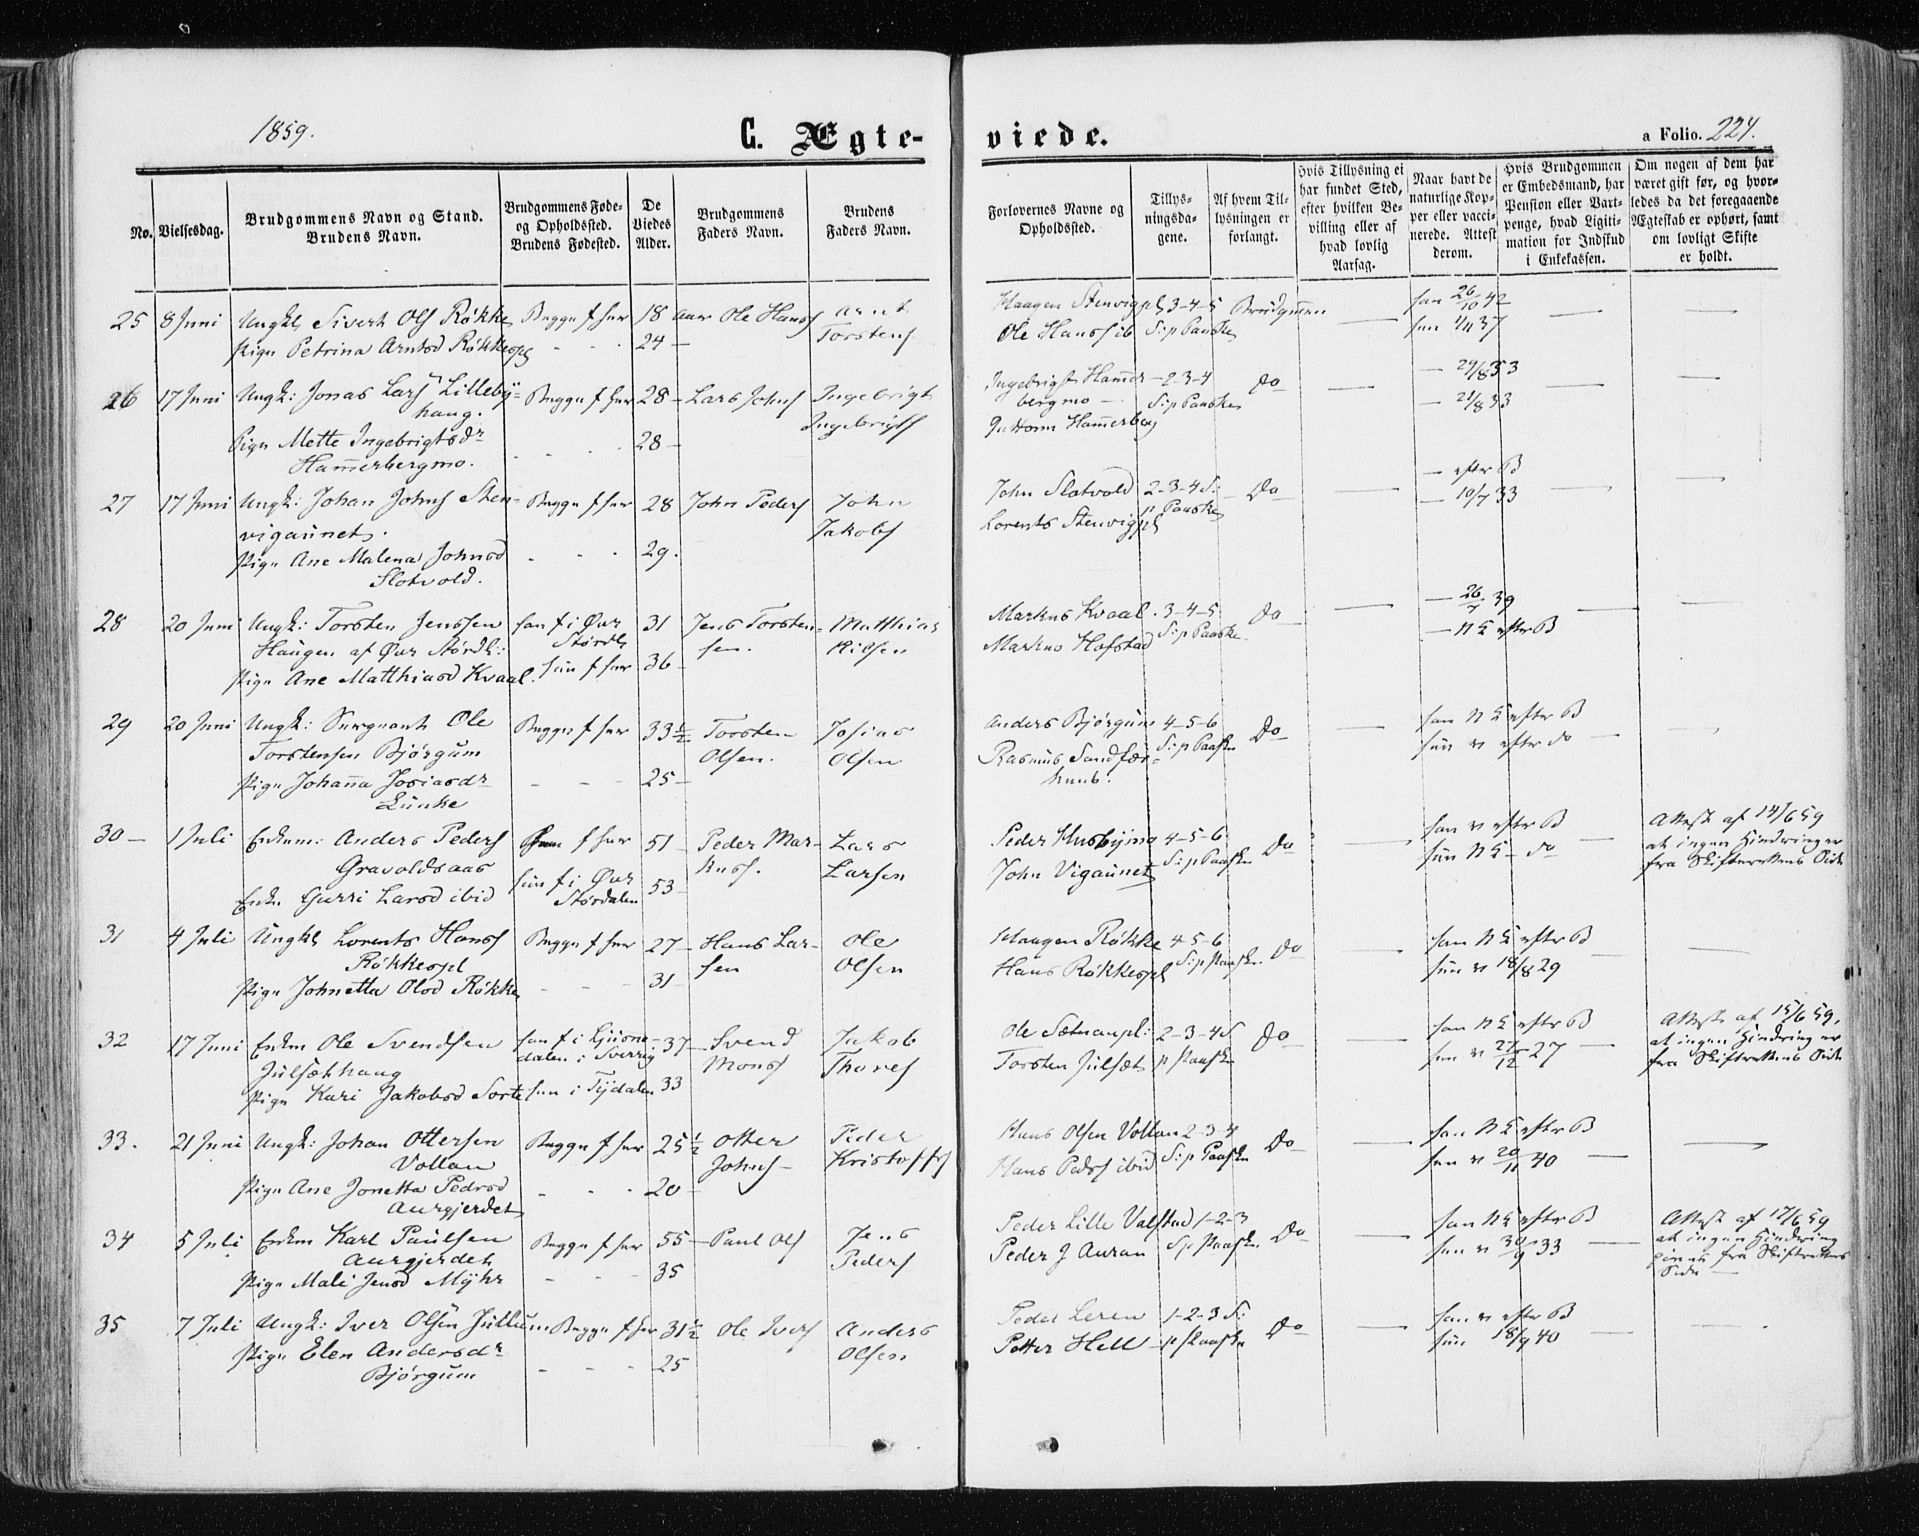 1859.
C. Ægte-
viede.
a Folio. 224.
No.
Vielsesdag.
Brudgommens Navn og Stand.
Brudens Navn.
Brudgommens Føde-
og Opholdssted.
Brudens Fødested.
De
Viedes
Alder.
Brudgommens
Faders Navn.
Brudens
Faders Navn.
Forlovernes Navne og
Opholdssted.
Tillys-
ningsda-
gene.
Af hvem Til-
lysningen er
forlangt.
Hvis Tillysning ei
har fundet Sted,
efter hvilken Be-
villing eller af
hvad lovlig
Aarsag.
Naar havt de
naturlige Kop-
per eller vacci-
nerede. Attest
derom.
Hvis Brudgommen
er Embedsmand, har
Pension eller Vart-
penge, hvad Ligiti-
mation for Indskud
i Enkekassen.
Om nogen af dem har
været gift før, og hvor-
ledes da det foregaaende
Ægteskab er ophørt, samt
om lovligt Skifte
er holdt.
25 8 Juni Ungkl Sivert Ols Røkke Begge f her 18 Aar Ole Hanss Arnt Haagen Stenvigpl 3-4-5 Brudgommen han 26/10 42
Pige Petrina Arntsd Røkkespl - - - 24 — Torstens Ole Hanss ib S: p Paaske hun 1/11 37
26 17 Juni Ungk: Jonas Lars Lilleby- Begge f her 28 — Lars Johns Ingebrigt Ingebrigt Hammer — 2-3-4 Do — 29/8 33
haug. Ingebrigts bergmo — S: p Paaske — 21/8 33
Pige Mette Ingebrigtsdr . . . . 28 — Guttorm Hammerberg
Hammerbergmo.
27 17 Juni Ungk: Johan Johns Sten- Begge f her 28 John Peders John John Slotvold 2-3-4 S: Do — efter B
vigaunet. Jakobs Lorents Stenvigpl p Paaske — 10/7 33
Pige Ane Malena Johnsd - - - 29.
Slotvold.
28 20 Juni Ungk: Torsten Jenssen han f i Øvr 31 Jens Torsten- Matthias Markus Kvaal . 3-4-5 Do — 26/7 39
Haugen af Øvr Størdl: Størdl sen. Nilsen Markus Hofstad S: p Paaske. — N E efter B
Pige Ane Matthiasd Kvaal. hun f her 36 —
29 20 Juni Ungk: Sergeant Ole Begge f her 33 ½ Torsten Josias Anders Bjørgum 4-5-6 Do han N E efter B
Torstensen Bjørgum Olsen. Olsen Rasmus Sandfær- S: p Paaske hun N efter do
Pige Johanna Josiasdr - - - 25 — hus.
Lunke
30 — 1 Juli Enkem: Anders Peders han f her 51 — Peder Mar- Lars Peder Husbymo 4-5-6 Do han N efter B Attest af 14/6 59
Gravoldsaas kuss. Larsen John Vigaunet S: p Paaske hun N E — do at ingen Hindring er
Enke Gurri Larsd ibid hun f i Øvr 53 fra Skifterettens Side
Størdalen
31 4 Juli Ungkl Lorents Hanss Begge f her 27 — Hans Lar- Ole Haagen Røkke 4-5-6 Do han N E efter B
Røkkespl sen Olsen Hans Røkkespl S: p Paaske hun N 18/8 29
Pige Johnetta Olsd Røkke - - - 31 —
32 17 Juni Enkm Ole Svendsen han f i Ljusne- 37 — Svend Jakob Ole Sætnanpl: 2-3-4 S Do han N E efter B Attest af 15/6 59,
Julsæthaug dalen i Sverrig Monss Thores Torsten Julsæt p Paaske hun N 27/12 27 at ingen Hindring er
Pige Kari Jakobsd Sorte hun i Tydalen 33 fra Skifterettens Side
33. 21 Juni Ungk: Johan Ottersen Begge f her 25 ½ Otter Peder Hans Olsen Vollan 2-3-4 Do han N E efter B
Vollan Johns — Kristoffs Hans Peders ibid S: p Paaske hun N 20/11 40
Pige Ane Jonetta Pedrsd - - - 20 —
Aurgjerdet
34 5 Juli Enkm Karl Paulsen Begge f her 55 — Paul Ols Jens Peder Lille Valstad 1-2-3 Do han N E efter B Attest af 17/6 59
Aurgjerdet Peders Peder J Auran S p Paaske hun N 30/9 33 at ingen Hindring
Pige Mali Jensd Myhr - - - 35 gives fra Skifterettens
Side —
35 7 Juli Ungk: Iver Olsen Jullum Begge f her 31 ½ Ole Ivers Anders Peder Leren 1-2-3 S: Do han N efter B
Pige Elen Andersdr - - - 25 Olsen Petter Hell p Paaske hun 18/9 40
Bjørgum